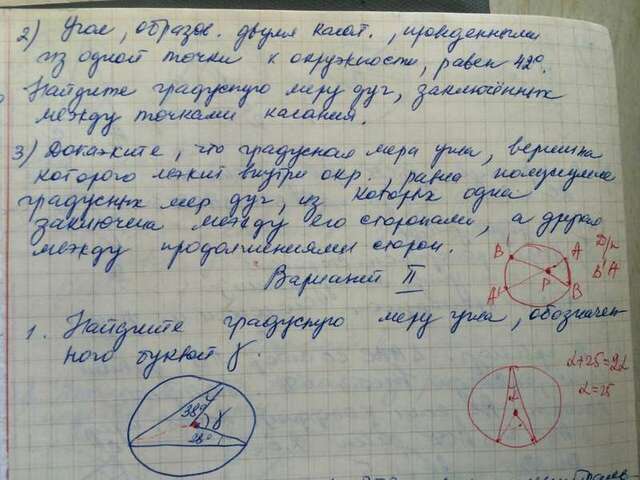 2) Угол, образов. двумя касат., проведенными
из одной точки к окружности, равен 42°.
Найдите градусную меру дуг, заключённых
между точками касания.
3) Докажите, что градусная мера угла, вершина
которого лежит внутри окр., равна полусумме
градусных мер дуг, из которых одна
заключена между его сторонами, а другая
между продолжениями сторон.
B' A
P
A' B
B'A'
Вариант II
1. Найдите градусную меру угла, обозначен-
ного буквой γ.
38° γ
28°
α
α+25=2α
α=25